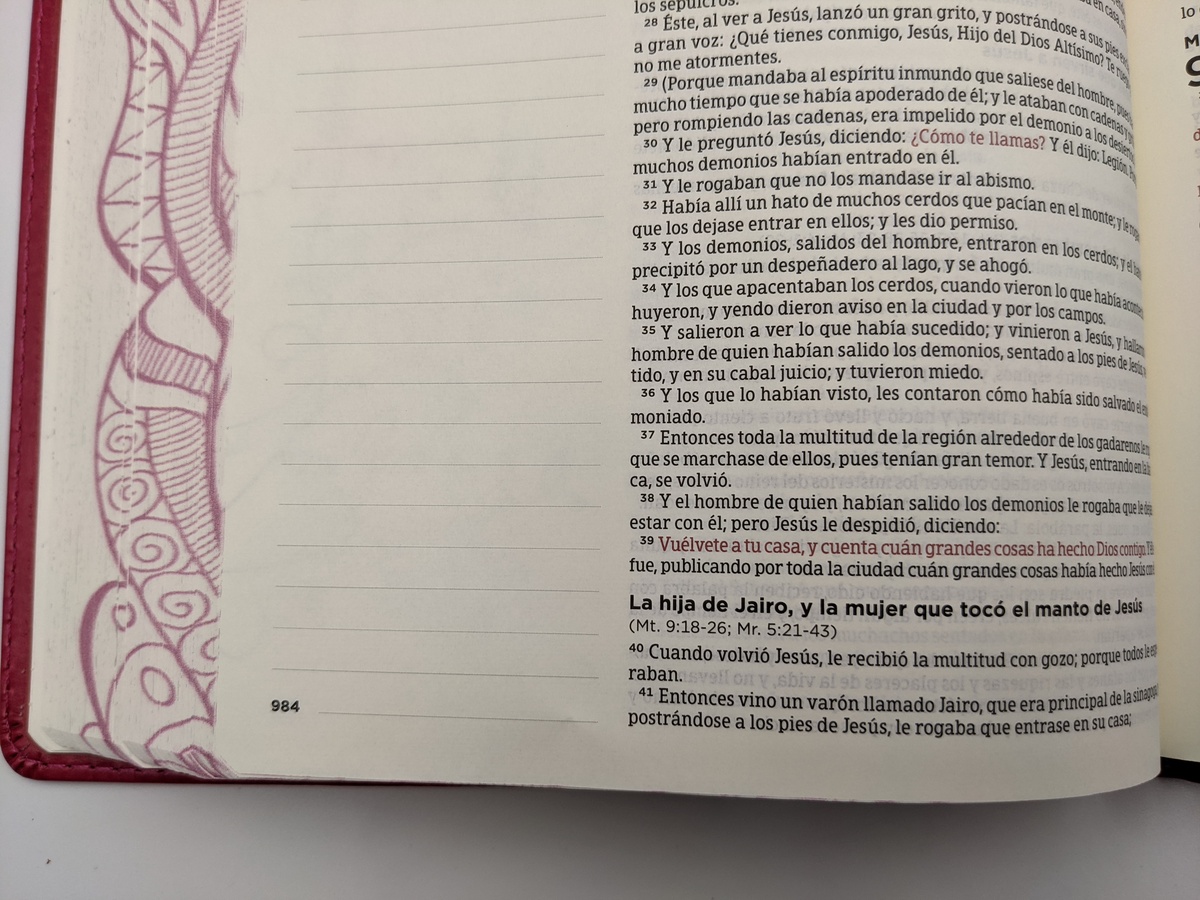 los sepulcros.
28 Éste, al ver a Jesús, lanzó un gran grito, y postrándose a sus pies
a gran voz: ¿Qué tienes conmigo, Jesús, Hijo del Dios Altísimo? Te
no me atormentes.
29 (Porque mandaba al espíritu inmundo que saliese del hombre,
mucho tiempo que se había apoderado de él; y le ataban con cadenas y
pero rompiendo las cadenas, era impelido por el demonio a los
30 Y le preguntó Jesús, diciendo: ¿Cómo te llamas? Y él dijo: Legión.
muchos demonios habían entrado en él.
31 Y le rogaban que no los mandase ir al abismo.
32 Había allí un hato de muchos cerdos que pacían en el monte; y le
que los dejase entrar en ellos; y les dio permiso.
33 Y los demonios, salidos del hombre, entraron en los cerdos; y el
precipitó por un despeñadero al lago, y se ahogó.
34 Y los que apacentaban los cerdos, cuando vieron lo que había
huyeron, y yendo dieron aviso en la ciudad y por los campos.
35 Y salieron a ver lo que había sucedido; y vinieron a Jesús, y
hombre de quien habían salido los demonios, sentado a los pies de Jesús
tido, y en su cabal juicio; y tuvieron miedo.
36 Y los que lo habían visto, les contaron cómo había sido salvado el
moniado.
37 Entonces toda la multitud de la región alrededor de los gadarenos
que se marchase de ellos, pues tenían gran temor. Y Jesús, entrando en la
ca, se volvió.
38 Y el hombre de quien habían salido los demonios le rogaba que le
estar con él; pero Jesús le despidió, diciendo:
39 Vuélvete a tu casa, y cuenta cuán grandes cosas ha hecho Dios contigo.
fue, publicando por toda la ciudad cuán grandes cosas había hecho Jesús
La hija de Jairo, y la mujer que tocó el manto de Jesús
(Mt. 9:18-26; Mr. 5:21-43)
40 Cuando volvió Jesús, le recibió la multitud con gozo; porque todos le
raban.
41 Entonces vino un varón llamado Jairo, que era principal de la
postrándose a los pies de Jesús, le rogaba que entrase en su casa;
984